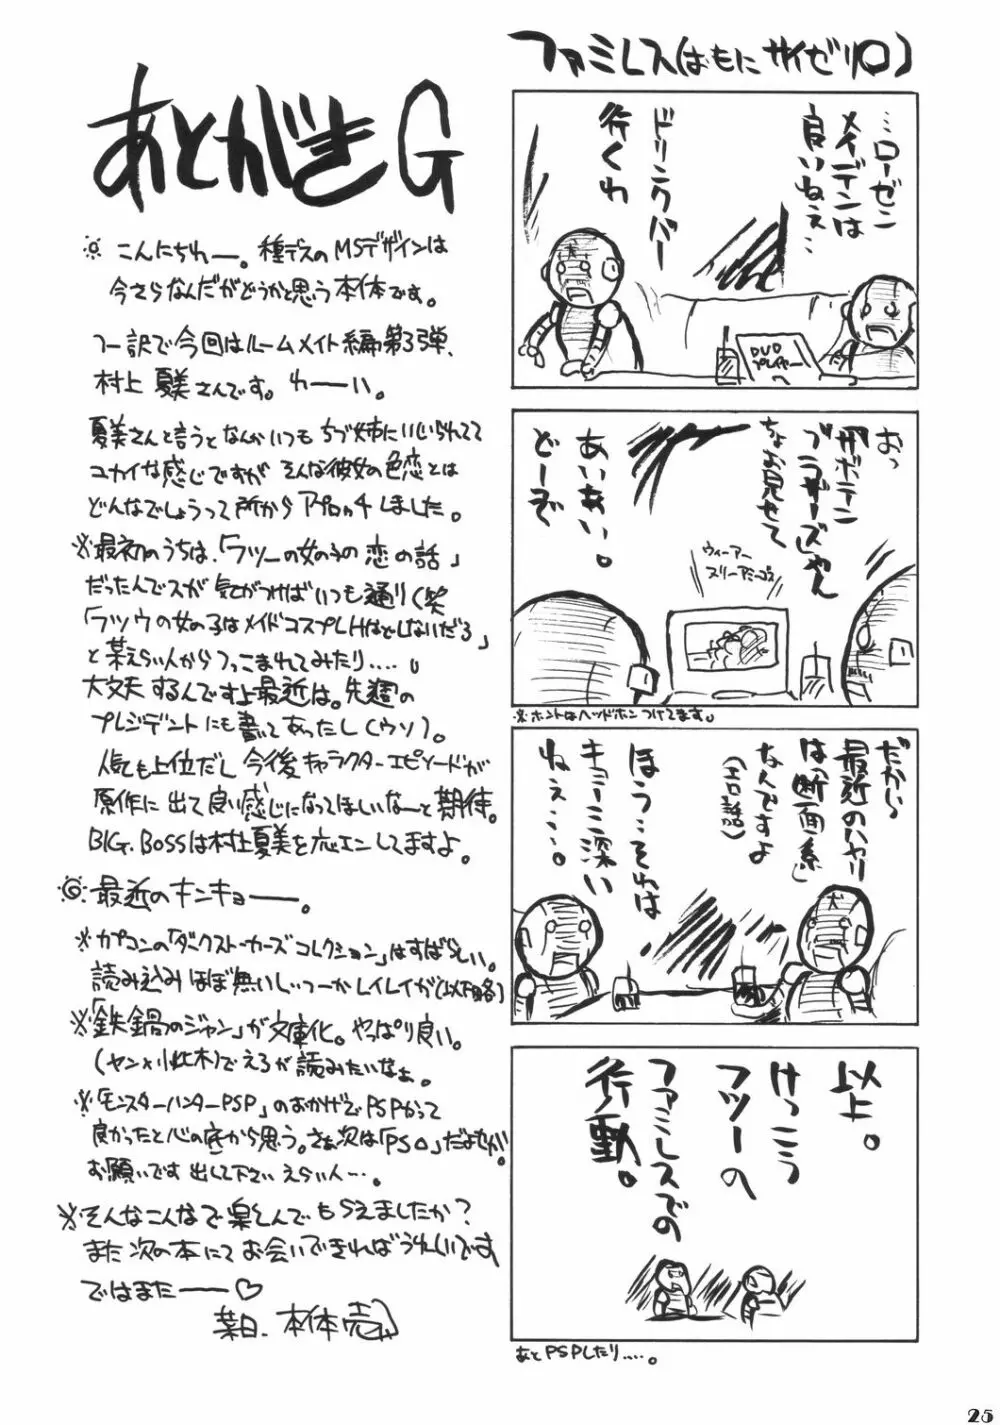 あとがきG
こんにちわー。種デスのMSデザインは
今さらなんだがどうかと思う本体です。
つー訳で今回はルームメイト編第3弾、
村上夏美さんです。わーい。
夏美さんと言うとなんかいつもちづ姉にいじられてて
ユカイな感じですが そんな彼女の色恋とは
どんなでしょうって所からアプロッチしました。
※最初のうちは、「フツーの女の子の恋の話」
だったんでスが気がつけばいつも通り(笑
「フツウの女の子はメイドコスプレHはどしないだろ」
と某えらい人からつっこまれてみたり....。
大丈夫するんですよ最近は。先週の
プレジデントにも書いてあったし(ウソ)。
人気も上位だし今後キャラクターエピソードが
原作に出て良い感じになってほしいなーと期待。
BIG.BOSSは村上夏美を応エンしてますよ。
最近のキンキョー。
※カプコンの「ダークストーカーズコレクション」はすばらしい。
読み込みほぼ無いしつーかレイレイが(以下略)
※「鉄鍋のジャン」が文庫化。やっぱり良い。
(ヤン×小此木)でえろが読みたいなぁ。
※「モンスターハンターPSP」のおかげでPSPかって
良かったと心の底から思う。さぁ次は「PS○」だよせが
お願いです出して下さいえらい人…。
※そんなこんなで楽しんでもらえましたか?
また次の本にてお会いできればうれしいです
ではまたー♡
某日.本体売
ファミレス(はもにサイゼリ○)
…ローゼン
メイデンは
良いねぇ…
ドリンクバー
行くわ
DVD
プレイヤー
へ
おっ
『サボテン
ブラザーズ』じゃん
ちょお見せて
あいあい。
どーぞ
ウィーアー
スリーアミーゴス
※ホントはヘッドホンつけてます。
だから
最近のハヤリ
は「断面系」
なんですよ
(エロ話)
ほう…それは
キョーミ深い
ねぇ….
以上。
けっこう
フツーの
ファミレスでの
行動。
あとPSPしたり….。
25